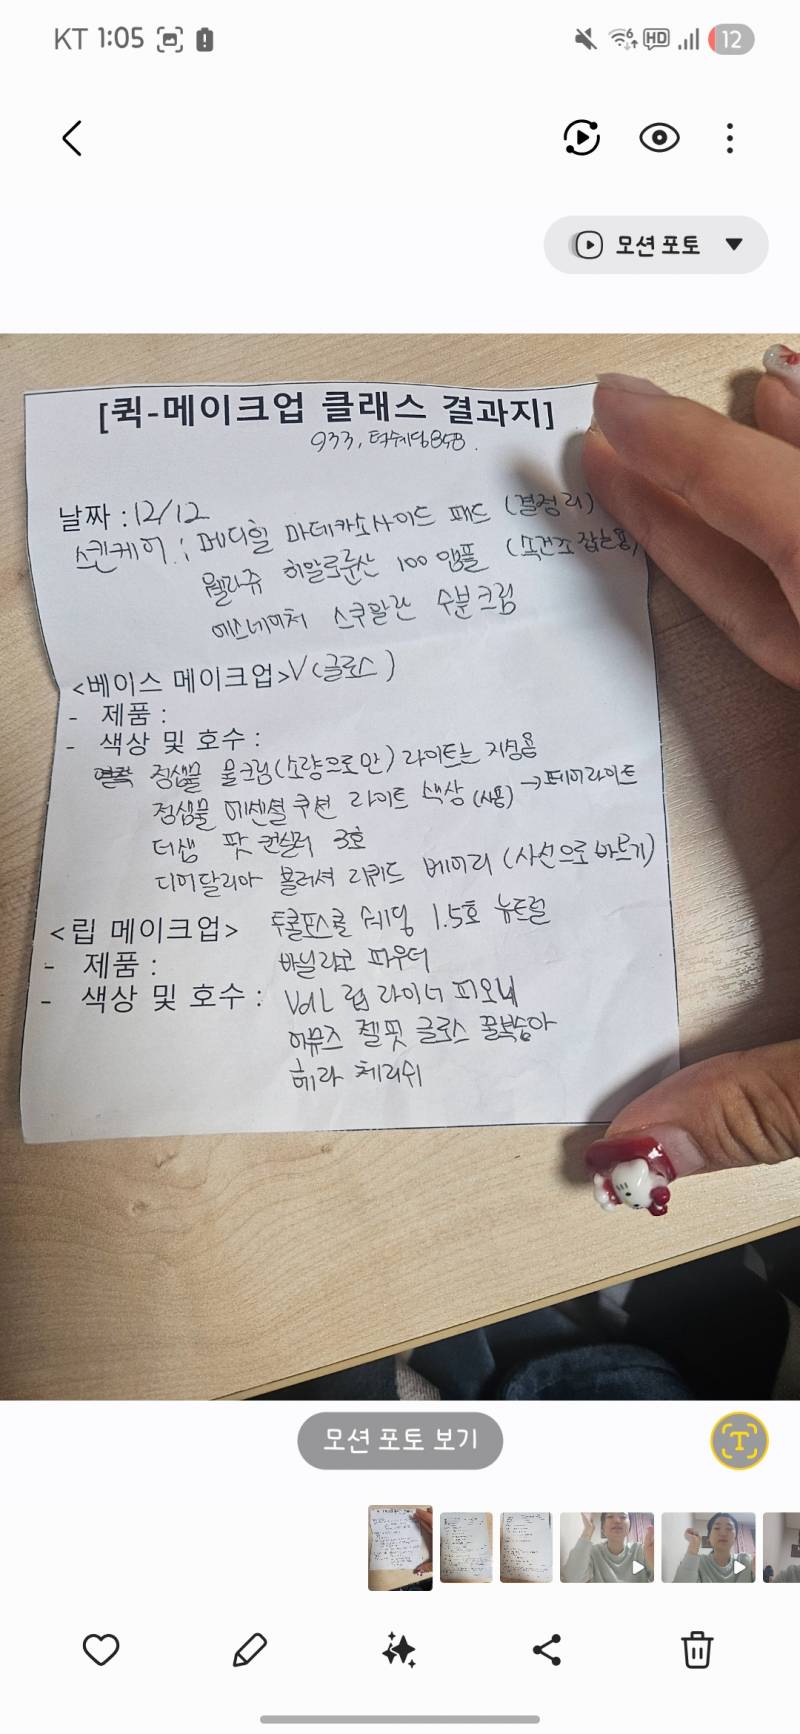 KT 1:05
HD 12
모션 포토
[퀵-메이크업 클래스 결과지]
933, 턱쉐딩858.
날짜 : 12/12
스킨케어 : 메디힐 마데카소사이드 패드 (결정리)
웰라쥬 히알루론산 100 앰플 (속건조 잡는용)
에스네이처 스쿠알란 수분크림
<베이스 메이크업> V (글로스)
- 제품 :
- 색상 및 호수 :
정샘물 물크림 (소량으로만) 라이트는 지성용
정샘물 에센셜 쿠션 라이트 색상 (사용) → 페어라이트
더샘 팟 컨실러 3호
디어달리아 블러셔 리퀴드 베이리 (사선으로 바르기)
<립 메이크업> 투쿨포스쿨 쉐딩 1.5호 뉴트럴
- 제품 : 바닐라코 파우더
- 색상 및 호수 : VdL 립 라이너 피오니
어뮤즈 젤핏 글로스 꿀복숭아
헤라 체리쉬
모션 포토 보기
T